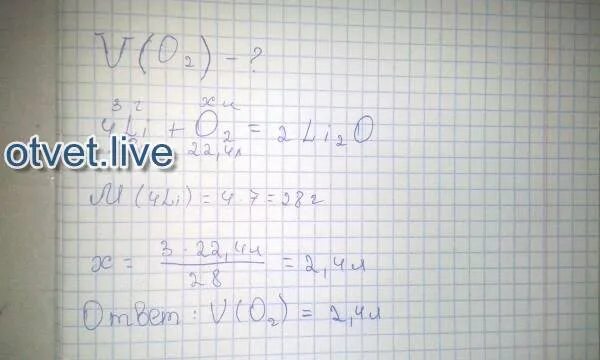 V(O₂) - ?
3 г x л
4Li + O₂ = 2Li₂O
22,4л
otvet.live
M(4Li) = 4·7 = 28г
x = 3·22,4л / 28 = 2,4л
Ответ: V(O₂) = 2,4л